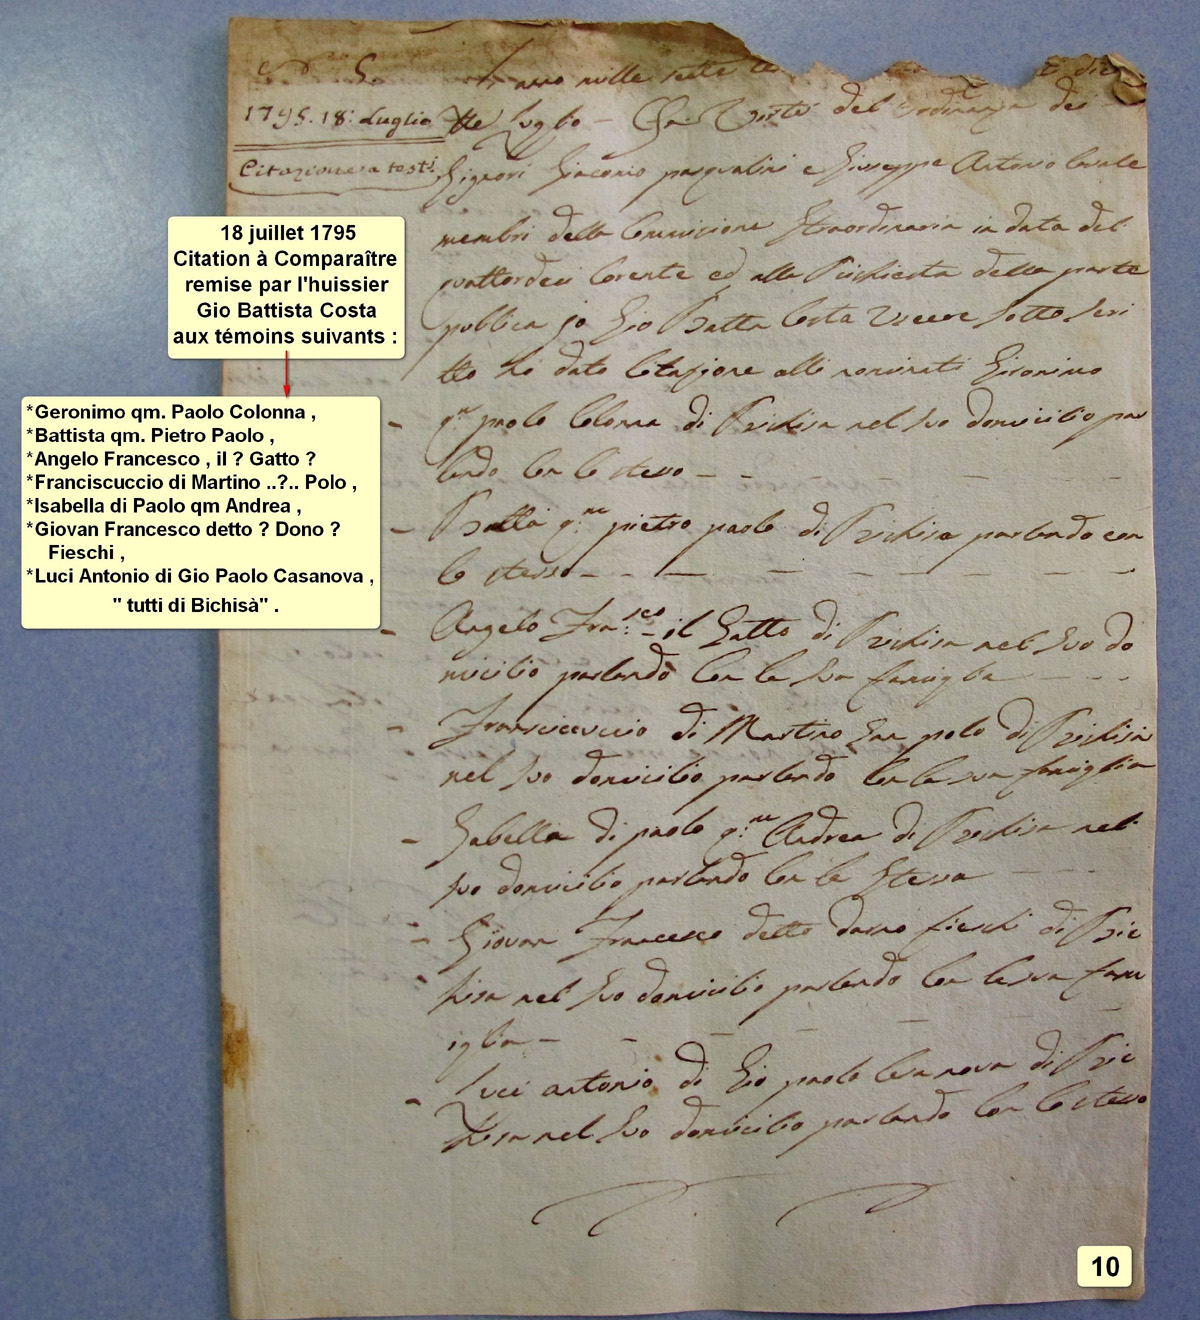 L'anno mille sette
1795. 18: Luglio
tte Luglio – In Virtù del ordinanza dei
Citazione a testi
Signori Giacomo pasqualini e Giuseppe Antonio
membri della Comissione Straordinaria in data del
quattordeci Corente ed alla Richiesta della parte
publica jo Gio Batta Costa Usciere sotto scri
tto ho dato Citazione alli nominati Gironimo
qm paolo Colonna di Bichisa nel suo domicilio par
lando con lo stesso – –
Batta q:m pietro paolo di Bichisa parlando con
lo stesso – – – – – –
Angelo Fra:sco il Gatto di Bichisa nel suo do
micilio parlando con la sua famiglia
Franciscuccio di Martino polo di Bichisa
nel suo domicilio parlando con la sua famiglia
Isabella di paolo q:m Andrea di Bichisa nel
suo domicilio parlando con la stessa
Giovan Francesco detto fieschi di Bic
hisa nel suo domicilio parlando con la sua fam
iglia –
Luci antonio di Gio paolo Casanova di Bic
hisa nel suo domicilio parlando con lo stesso
18 juillet 1795
Citation à Comparaître
remise par l'huissier
Gio Battista Costa
aux témoins suivants :
*Geronimo qm. Paolo Colonna ,
*Battista qm. Pietro Paolo ,
*Angelo Francesco , il ? Gatto ?
*Franciscuccio di Martino ..?.. Polo ,
*Isabella di Paolo qm Andrea ,
*Giovan Francesco detto ? Dono ?
Fieschi ,
*Luci Antonio di Gio Paolo Casanova ,
" tutti di Bichisà" .
10